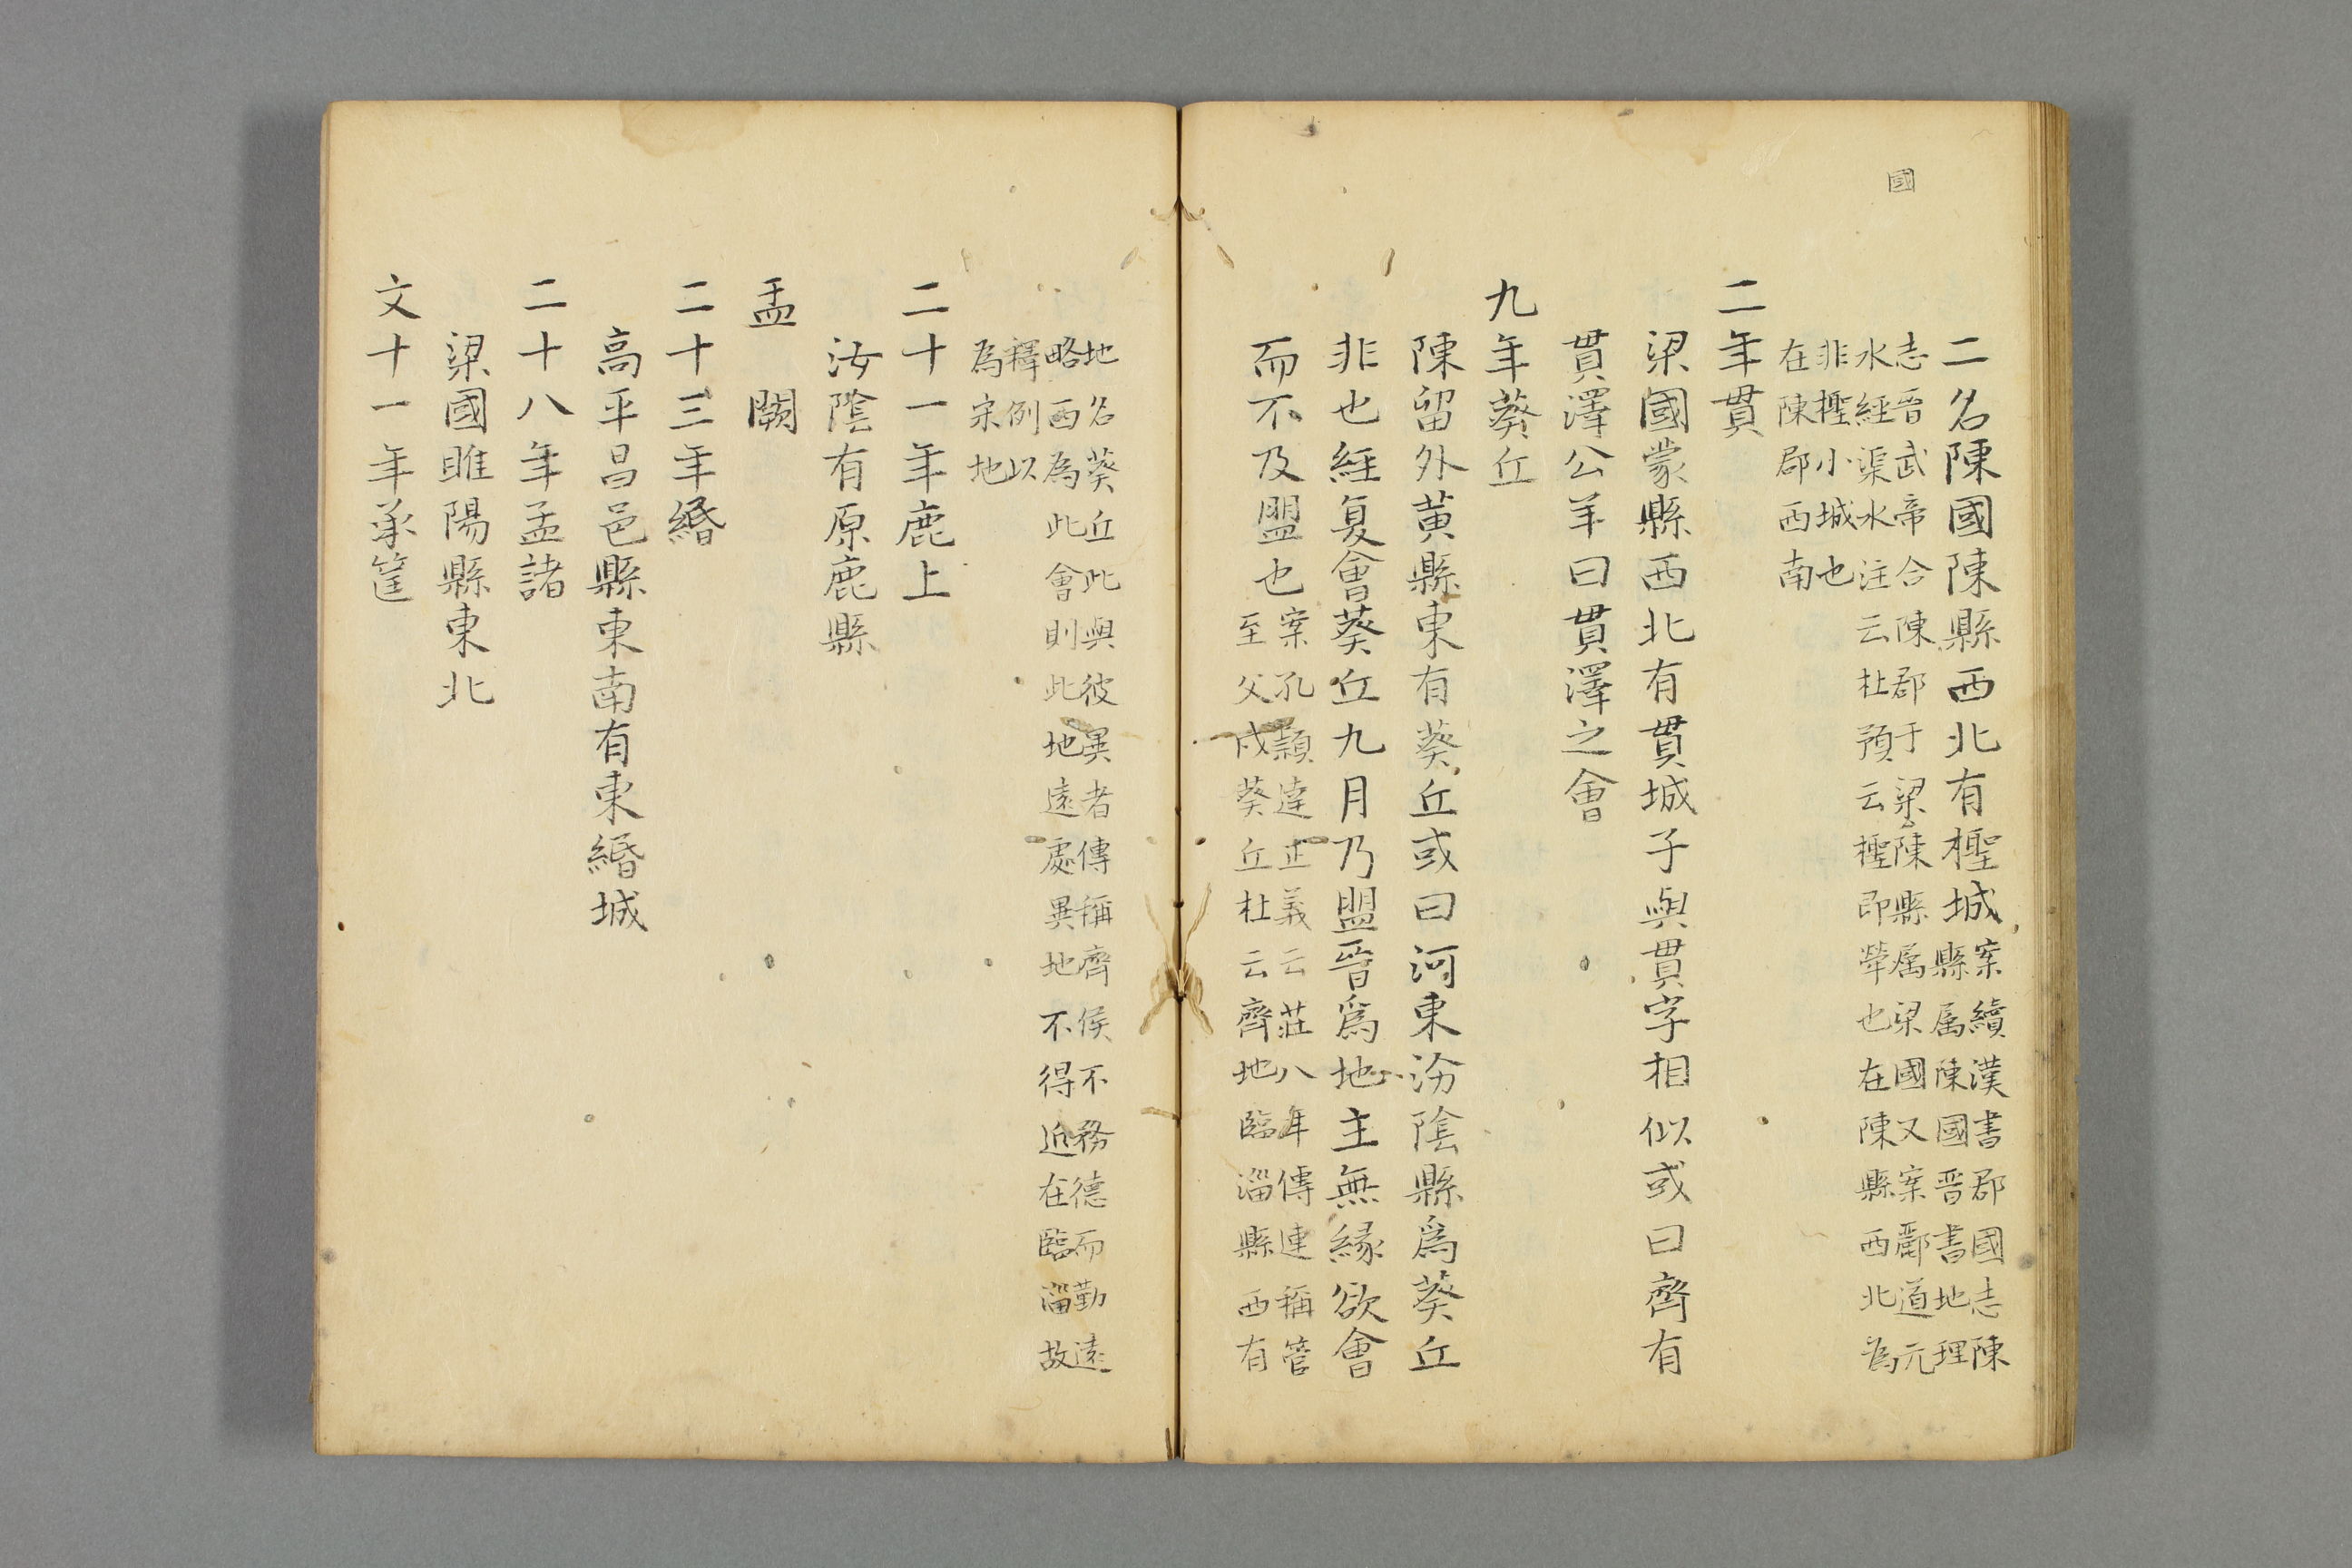 國
二名陳國陳縣西北有檉城
案續漢書郡國志陳
縣属陳國晋書地理
志晋武帝合陳郡于梁陳縣属梁國又案酈道元
水經渠水注云杜預云檉即犖也在陳縣西北為
非檉小城也
在陳郡西南
二年貫
梁國蒙縣西北有貫城子與貫字相似或曰齊有
貫澤公羊曰貫澤之會
九年葵丘
陳留外黃縣東有葵丘或曰河東汾陰縣爲葵丘
非也經夏會葵丘九月乃盟晉爲地主無緣欲會
而不及盟也
案孔穎達正義云莊八年傳連稱管
至父戍葵丘杜云齊地臨淄縣西有
地名葵丘此與彼異者傳稱齊侯不務德而勤遠
略西為此會則此地遠處異地不得近在臨淄故
釋例以
為宋地
二十一年鹿上
汝陰有原鹿縣
盂 闕
二十三年緡
高平昌邑縣東南有東緡城
二十八年孟諸
梁國睢陽縣東北
文十一年承筐